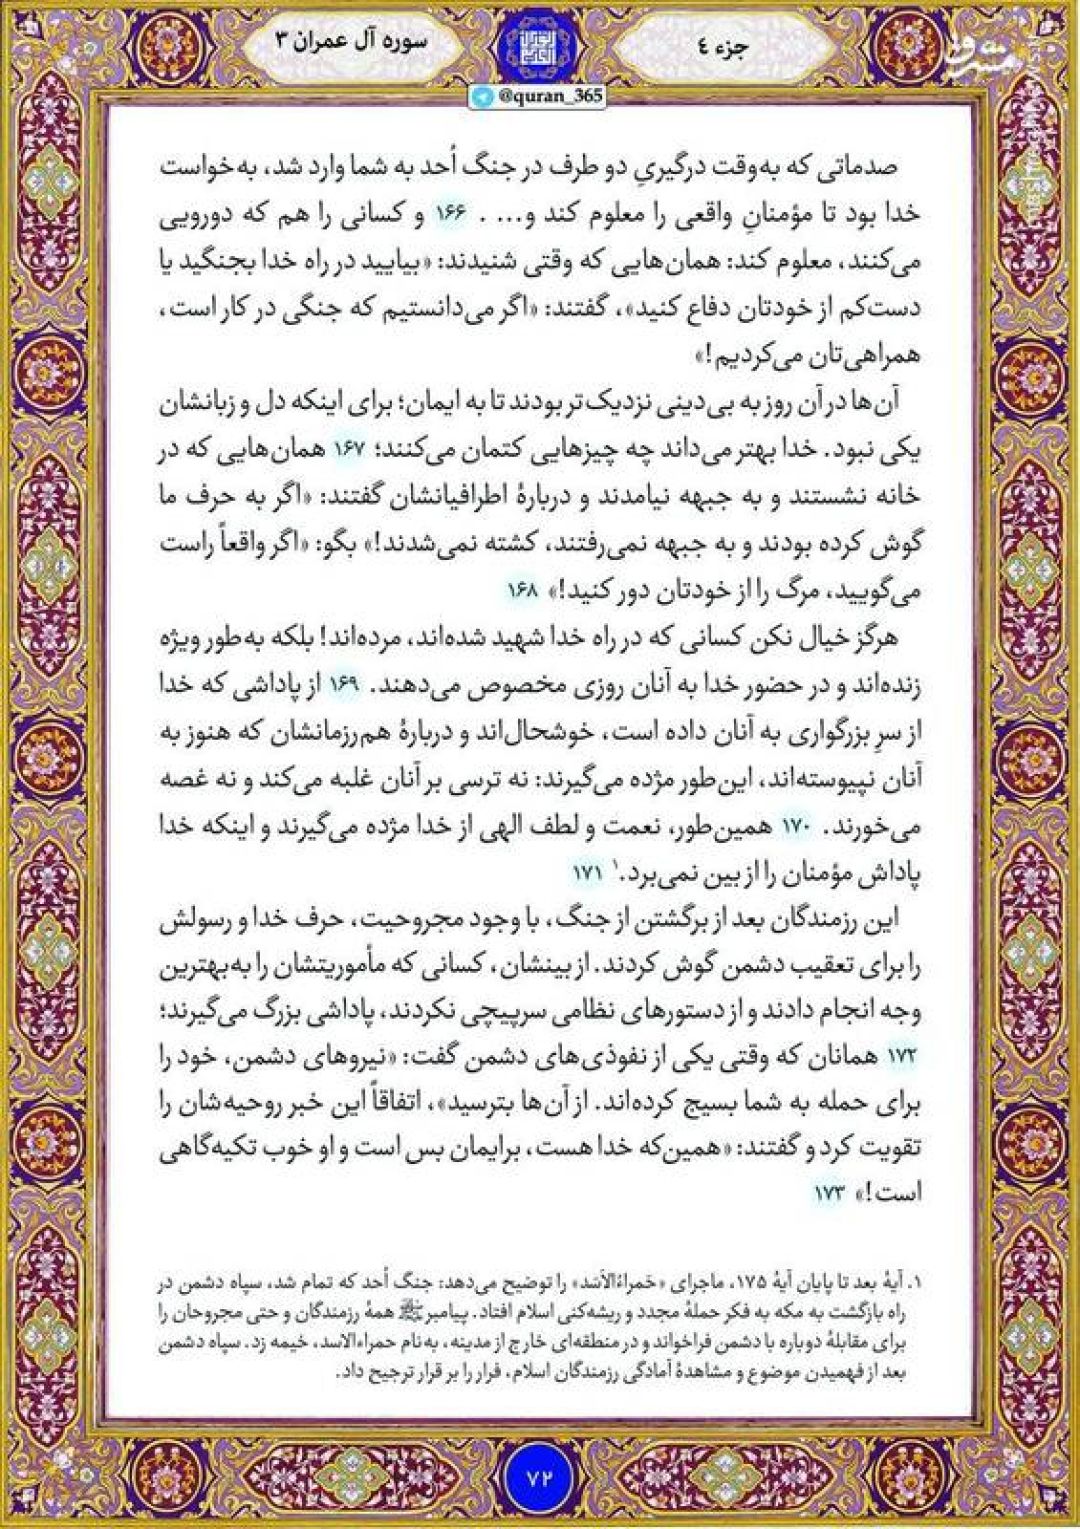 جزء ٤
سوره آل عمران ۳
@quran_365
مشرق
صدماتی که به‌وقت درگیریِ دو طرف در جنگ اُحد به شما وارد شد، به‌خواست
خدا بود تا مؤمنانِ واقعی را معلوم کند و... . ۱۶۶ و کسانی را هم که دورویی
می‌کنند، معلوم کند: همان‌هایی که وقتی شنیدند: «بیایید در راه خدا بجنگید یا
دست‌کم از خودتان دفاع کنید»، گفتند: «اگر می‌دانستیم که جنگی در کار است،
همراهی‌تان می‌کردیم!»
آن‌ها در آن روز به بی‌دینی نزدیک‌تر بودند تا به ایمان؛ برای اینکه دل و زبانشان
یکی نبود. خدا بهتر می‌داند چه چیزهایی کتمان می‌کنند؛ ۱۶۷ همان‌هایی که در
خانه نشستند و به جبهه نیامدند و دربارهٔ اطرافیانشان گفتند: «اگر به حرف ما
گوش کرده بودند و به جبهه نمی‌رفتند، کشته نمی‌شدند!» بگو: «اگر واقعاً راست
می‌گویید، مرگ را از خودتان دور کنید!» ۱۶۸
هرگز خیال نکن کسانی که در راه خدا شهید شده‌اند، مرده‌اند! بلکه به‌طور ویژه
زنده‌اند و در حضور خدا به آنان روزی مخصوص می‌دهند. ۱۶۹ از پاداشی که خدا
از سرِ بزرگواری به آنان داده است، خوشحال‌اند و دربارهٔ هم‌رزمانشان که هنوز به
آنان نپیوسته‌اند، این‌طور مژده می‌گیرند: نه ترسی بر آنان غلبه می‌کند و نه غصه
می‌خورند. ۱۷۰ همین‌طور، نعمت و لطف الهی از خدا مژده می‌گیرند و اینکه خدا
پاداش مؤمنان را از بین نمی‌برد.۱ ۱۷۱
این رزمندگان بعد از برگشتن از جنگ، با وجود مجروحیت، حرف خدا و رسولش
را برای تعقیب دشمن گوش کردند. از بینشان، کسانی که مأموریتشان را به‌بهترین
وجه انجام دادند و از دستورهای نظامی سرپیچی نکردند، پاداشی بزرگ می‌گیرند؛
۱۷۲ همانان که وقتی یکی از نفوذی‌های دشمن گفت: «نیروهای دشمن، خود را
برای حمله به شما بسیج کرده‌اند. از آن‌ها بترسید»، اتفاقاً این خبر روحیه‌شان را
تقویت کرد و گفتند: «همین‌که خدا هست، برایمان بس است و او خوب تکیه‌گاهی
است!» ۱۷۳
۱. آیهٔ بعد تا پایان آیهٔ ۱۷۵، ماجرای «حَمراءُالاَسَد» را توضیح می‌دهد: جنگ اُحد که تمام شد، سپاه دشمن در
راه بازگشت به مکه به فکر حملهٔ مجدد و ریشه‌کنی اسلام افتاد. پیامبرﷺ همهٔ رزمندگان و حتی مجروحان را
برای مقابلهٔ دوباره با دشمن فراخواند و در منطقه‌ای خارج از مدینه، به‌نام حمراءالاسد، خیمه زد. سپاه دشمن
بعد از فهمیدن موضوع و مشاهدهٔ آمادگی رزمندگان اسلام، فرار را بر قرار ترجیح داد.
۷۲